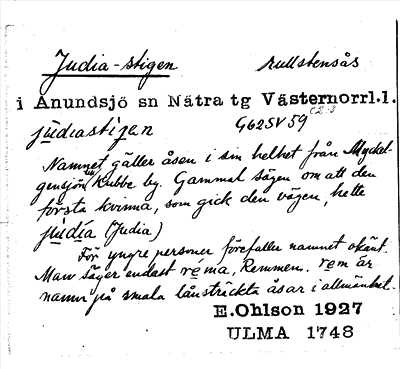 Judia-stigen rullstensås
i Anundsjö sn Nätra tg Västernorrl.l.
jùdiastigen G62SV59
C2:3
Namnet gäller åsen i sin helhet från Myckel-
gensjön till Kubbe by. Gammal sägen om att den
första kvinna, som gick den vägen, hette
jùdia (Judia)
För yngre personer förefaller namnet okänt.
Man säger endast réma, Remmen. rem är
namn på smala långsträckta åsar i allmänhet.
E.Ohlson 1927
ULMA 1748